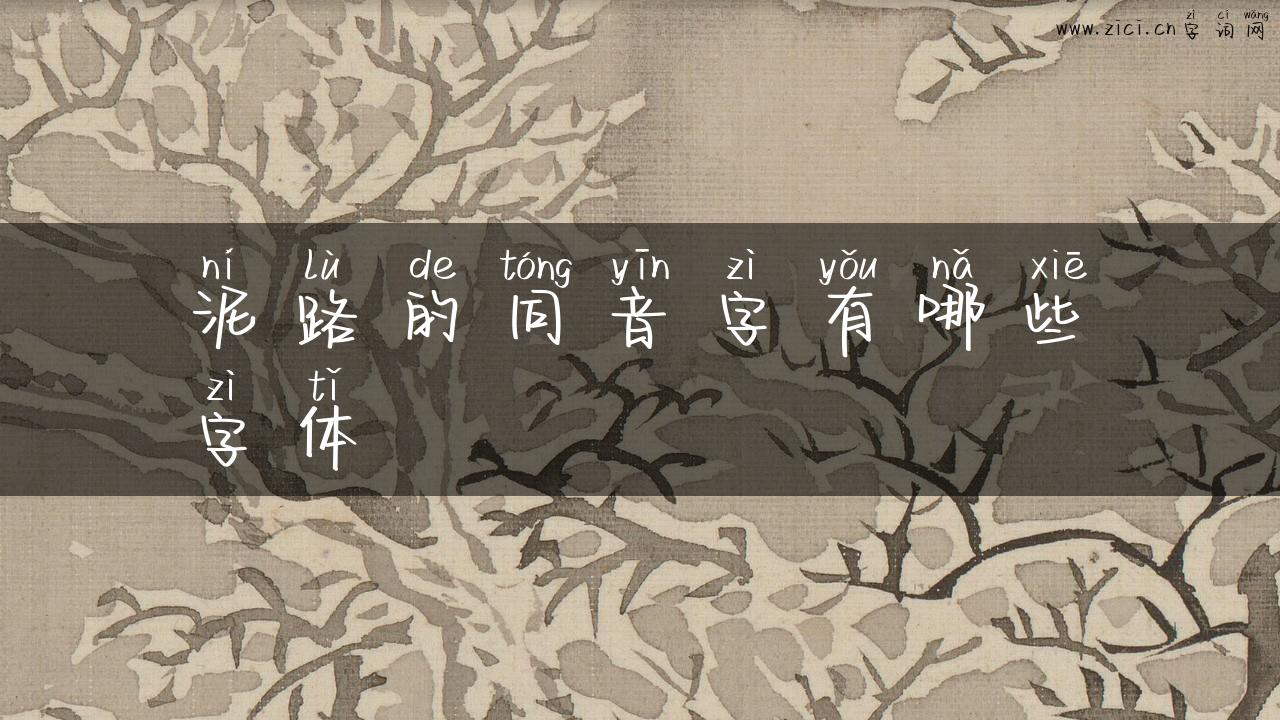 zì cí wǎng
www.zici.cn 字词网
ní lù de tóng yīn zì yǒu nǎ xiē
泥路的同音字有哪些
zì tǐ
字体